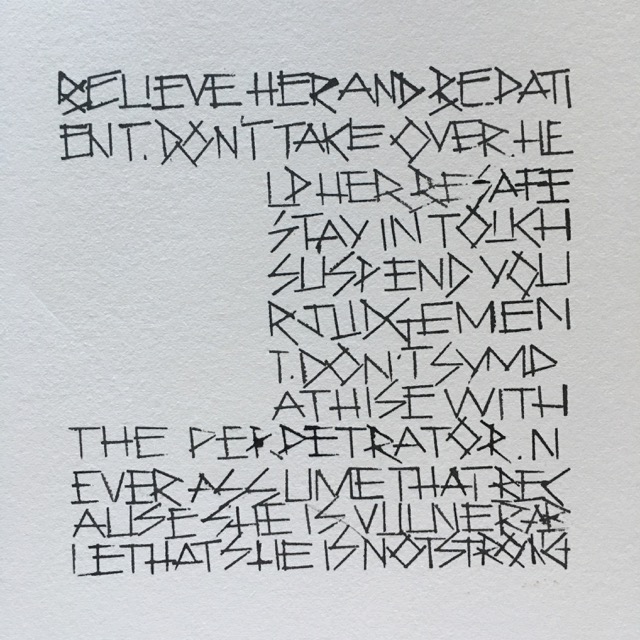 BELIEVE HER AND BE PATI
ENT. DON'T TAKE OVER. HE
LP HER BE SAFE
STAY IN TOUCH
SUSPEND YOU
R JUDGEMEN
T. DON'T SYMP
ATHISE WITH
THE PERPETRATOR. N
EVER ASSUME THAT BEC
AUSE SHE IS VULNERAB
LE THAT SHE IS NOT STRONG